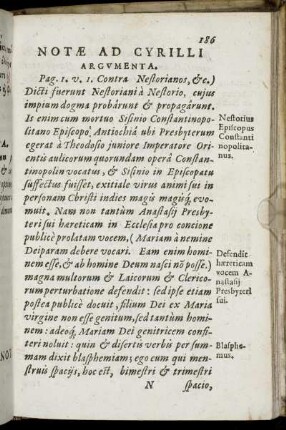 186
NOTÆ AD CYRILLI
ARGVMENTA.
Pag. 1. v. 1. Contra Nestorianos, &c.)
Dicti fuerunt Nestoriani à Nestorio, cujus
impium dogma probârunt & propagârunt.
Is enim cum mortuo Sisinio Constantinopo-
litano Episcopo, Antiochiâ ubi Presbyterum
egerat à Theodosio juniore Imperatore Ori-
entis aulicorum quorundam operâ Constan-
tinopolin vocatus, & Sisinio in Episcopatu
suffectus fuisset, exitiale virus animi sui in
personam Christi indies magis magisq́, evo-
muit. Nam non tantùm Anastasij Presby-
teri sui hæreticam in Ecclesia pro concione
publicè prolatam vocem, (Mariam à nemine
Deiparam debere vocari. Eam enim homi-
nem esse, & ab homine Deum nasci nõ posse.)
magna multorum & Laicorum & Clerico-
rum perturbatione defendit: sed ipse etiam
postea publicè docuit, filium Dei ex Maria
virgine non esse genitum, sed tantùm homi-
nem: adeoq́, Mariam Dei genitricem confi-
teri noluit: quin & disertis verbis per sum-
mam dixit blasphemiam; ego eum qui men-
struis spacijs, hoc est, bimestri & trimestri
N spacio,
Nestorius
Episcopus
Constanti
nopolita-
nus.
Defendit
hæreticum
vocem A-
nastasij
Presbyteri
sui.
Blasphe-
mus.